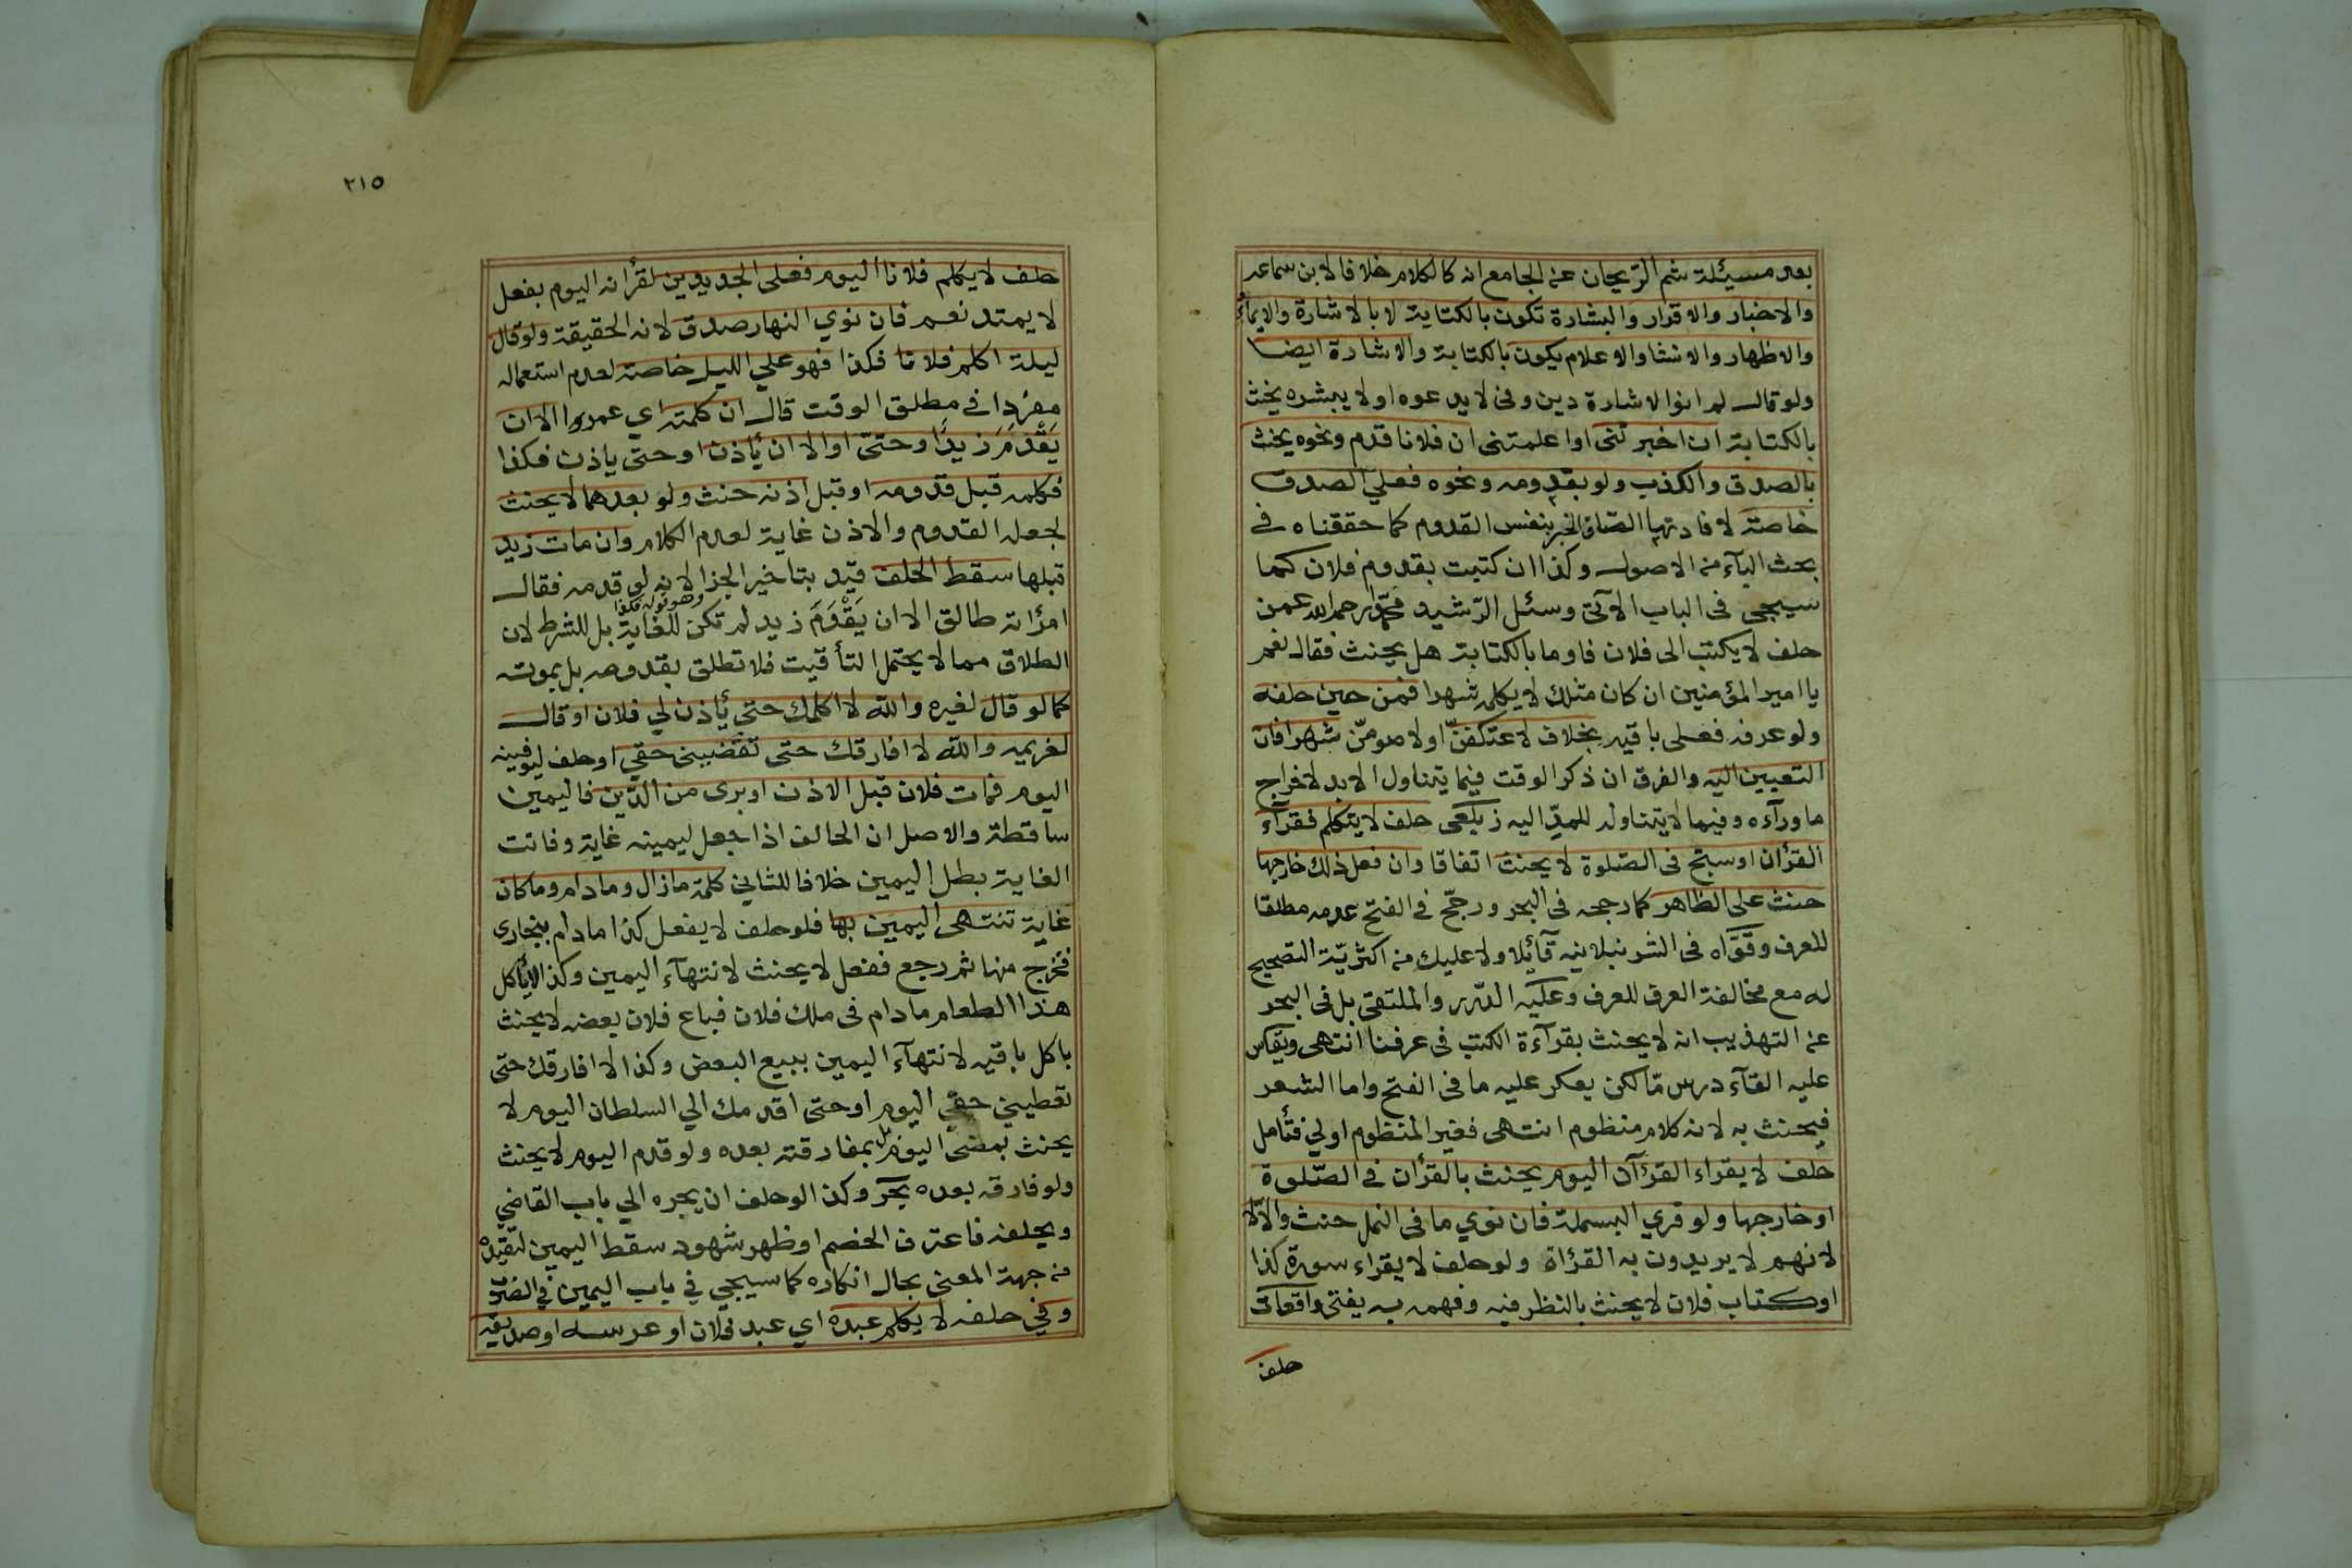 بعد مسيئلة شم الرّيحان عن الجامع انه كالكلام خلافا لابن سماعه
والاخبار والاقرار والبشارة تكون بالكتابة لا بالاشارة والايماء
والاظهار والافشا والاعلام يكون بالكتابة والاشارة ايضا
ولو قال لم انو الاشارة دين وفى لا يدعوه او لا يبشره يحنث
بالكتابة ان اخبرتنى او اعلمتنى ان فلانا قدم ونحوه يحنث
بالصدق والكذب ولو بقدومه ونحوه فعلي الصدق
خاصة لافادتها الصاق الخبر بنفس القدوم كما حققناه فى
بحث الباء من الاصول وكذا ان كتبت بقدوم فلان كما
سيجي فى الباب الآتى وسئل الرّشيد محمّدا رحمه الله عمن
حلف لا يكتب الى فلان فاوما بالكتابة هل يحنث فقال نعم
يا امير المؤمنين ان كان مثلك لا يكلمه شهرا فمن حين حلفه
ولو عرفه فعلى باقيه بخلاف لاعتكفنّ او لاصومنّ شهرا فان
التعيين اليه والفرق ان ذكر الوقت فيما يتناول الابد لاخراج
ما ورآءه وفيما لا يتناوله للمدّ اليه زيلعى حلف لا يتكلم فقرآء
القرأن او سبّح فى الصّلوة لا يحنث اتفاقا وان فعل ذلك خارجها
حنث على الظاهر كما رجحه فى البحر ورجّح فى الفتح عدمه مطلقا
للعرف وقوّاه فى الشرنبلانيه قآئلا ولا عليك من اكثريّة التصحيح
له مع مخالفة العرف للعرف وعليه الدّرر والملتقى بل فى البحر
عن التهذيب انه لا يحنث بقرآءة الكتب فى عرفنا انتهى ويقاس
عليه القآء درس مّا لكن يعكر عليه ما فى الفتح واما الشعر
فيحنث به لانه كلام منظوم انتهى فغير المنظوم اولي فتأمل
حلف لا يقراء القرآن اليوم يحنث بالقرأن فى الصّلوة
او خارجها ولو قري البسملة فان نوي ما فى النمل حنث والّا لا
لانهم لا يريدون به القرأة ولو حلف لا يقراء سورة كذا
او كتاب فلان لا يحنث بالنظر فيه وفهمه به يفتى واقعات
حلف
٢١٥
حلف لا يكلم فلانا اليوم فعلى الجديدين لقرأنه اليوم بفعل
لا يمتد نعم فان نوي النهار صدق لانه الحقيقة ولو قال
ليلة اكلم فلانا فكذا فهو علي الليل خاصة لعدم استعماله
مفردا فى مطلق الوقت قال ان كلمته اي عمروا الا ان
يَقْدَمَ زيدًا وحتى او الا ان يأذن او حتى ياذن فكذا
فكلمه قبل قدومه او قبل اذنه حنث ولو بعدهما لا يحنث
لجعله القدوم والاذن غاية لعدم الكلام وان مات زيد
قبلها سقط الحلف قيد بتاخير الجزا لانه لو قدمه فقال
امرأته طالق الا ان يَقْدَمَ زيد لم تكن للغاية بل للشرط لان
وهو قوله فكذا
الطلاق مما لا يحتمل التأقيت فلا تطلق بقدومه بل بموته
كما لو قال لغيره والله لا اكلمك حتى يأذن لي فلان او قال
لغريمه والله لا افارقك حتى تقضيني حقي او حلف ليوفينه
اليوم فمات فلان قبل الاذن او برى من الدّين فاليمين
ساقطة والاصل ان الحالف اذا جعل ليمينه غاية وفاتت
الغاية بطل اليمين خلافا للثاني كلمة مازال ومادام وما كان
غاية تنتهى اليمين بها فلو حلف لا يفعل كذا مادام ببخارى
فخرج منها ثم رجع ففعل لا يحنث لانتهآء اليمين وكذا لا يأكل
هذا الطعام مادام فى ملك فلان فباع فلان بعضه لا يحنث
باكل باقيه لانتهآء اليمين ببيع البعض وكذا لا افارقك حتى
تعطيني حقي اليوم او حتى اقدمك الي السلطان اليوم لا
يحنث بمضي اليوم بل بمفارقته بعده ولو قدم اليوم لا يحنث
ولو فارقه بعده بحر وكذا لو حلف ان يجره الي باب القاضي
ويحلفه فاعترف الخصم او ظهر شهود سقط اليمين لتقيده
من جهة المعنى بحال انكاره كما سيجي في باب اليمين في الضرب
وفي حلفه لا يكلم عبده اي عبد فلان او عرسه او صديقه